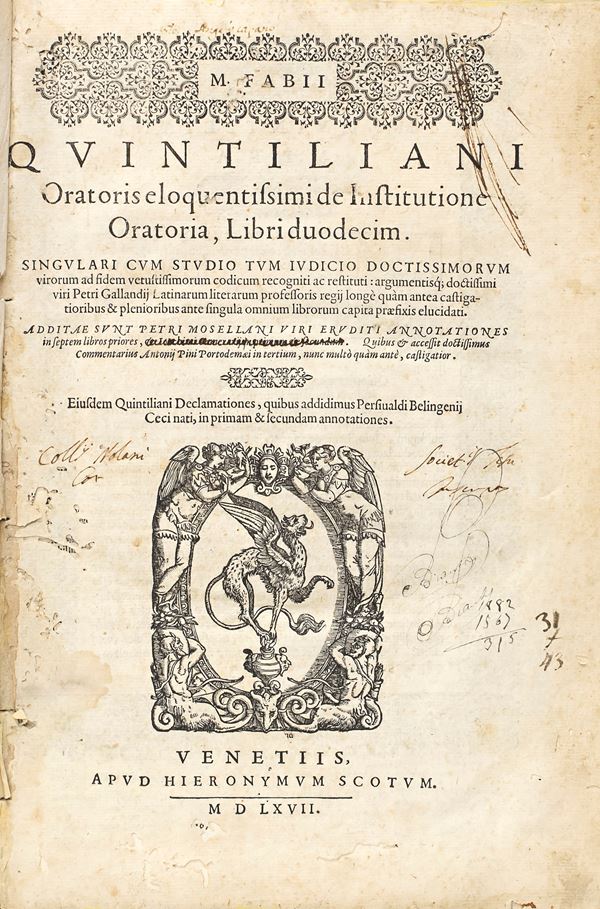 M. FABII
QVINTILIANI
Oratoris eloquentiſsimi de Inſtitutione
Oratoria, Libri duodecim.
SINGVLARI CVM STVDIO TVM IVDICIO DOCTISSIMORVM
virorum ad fidem vetuſtiſſimorum codicum recogniti ac reſtituti: argumentisq́; doctiſſimi
viri Petri Gallandij Latinarum literarum profeſſoris regij longè quàm antea caſtiga-
tioribus & plenioribus ante ſingula omnium librorum capita præfixis elucidati.
ADDITAE SVNT PETRI MOSELLANI VIRI ERVDITI ANNOTATIONES
in ſeptem libros priores, Quibus & acceſſit doctiſſimus
Commentarius Antonij Pini Portodemæi in tertium, nunc multò quàm antè, caſtigatior.
Eiuſdem Quintiliani Declamationes, quibus addidimus Perſiualdi Belingenij
Ceci nati, in primam & ſecundam annotationes.
Coll.ij Nolani
Societ.is Jesu
1882
1567
315
31
7
43
VENETIIS,
APVD HIERONYMVM SCOTVM.
M D LXVII.